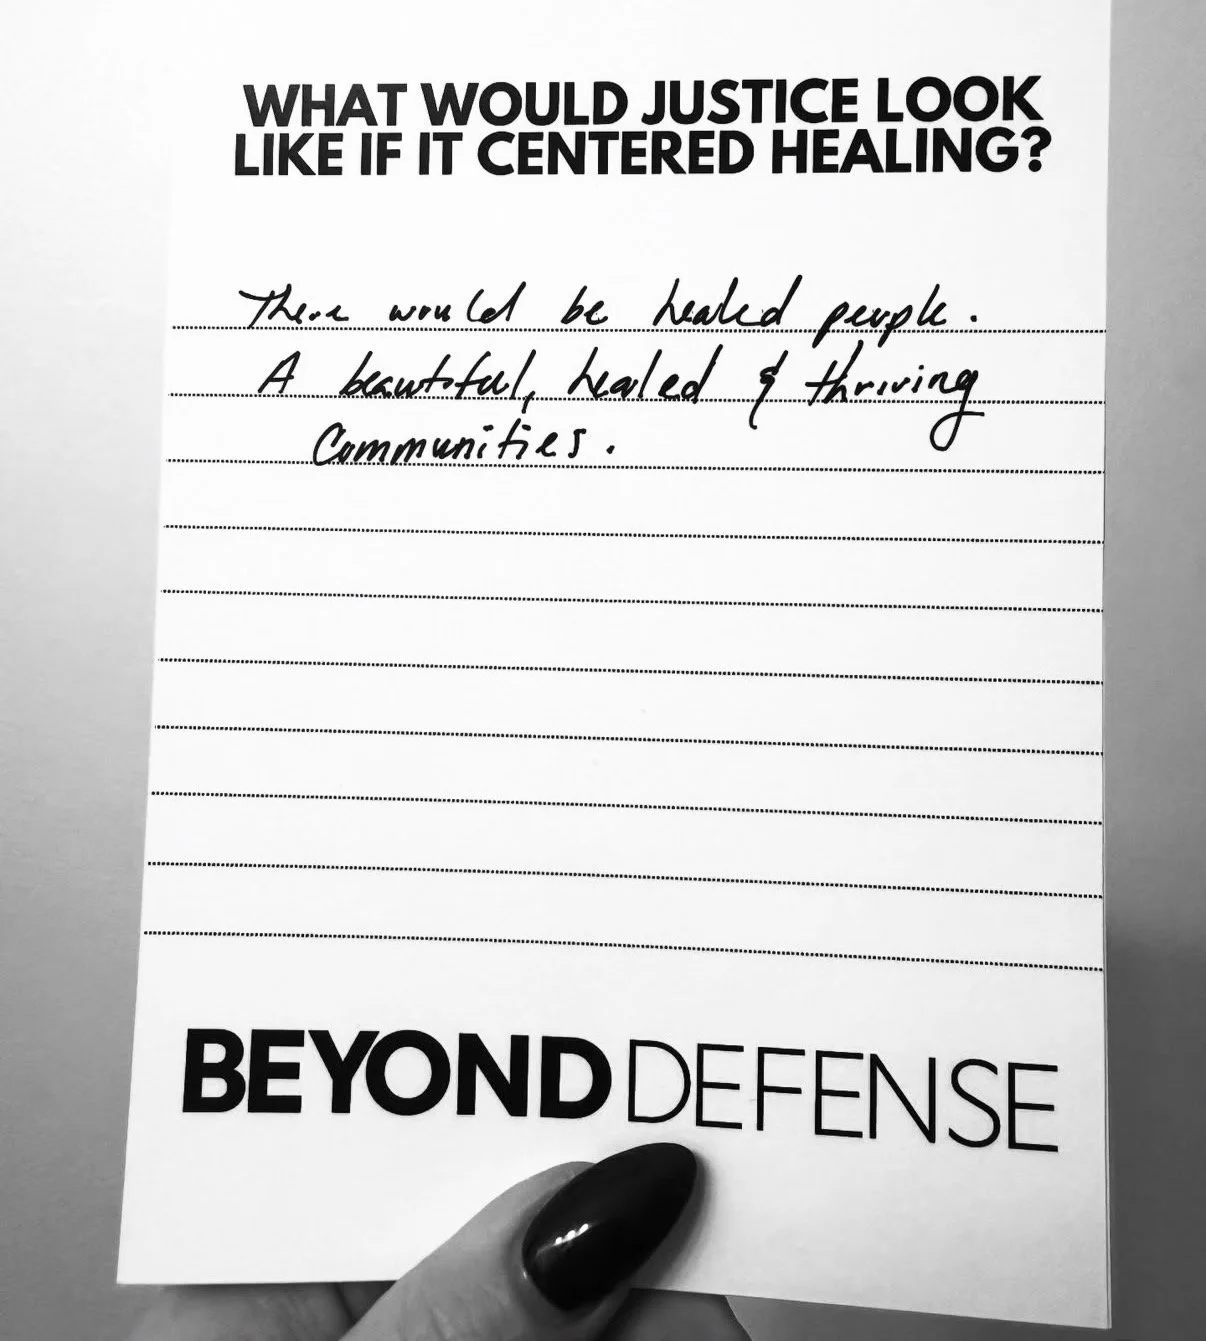 WHAT WOULD JUSTICE LOOK
LIKE IF IT CENTERED HEALING?
There would be healed people.
A beautiful, healed & thriving
Communities.
BEYOND DEFENSE